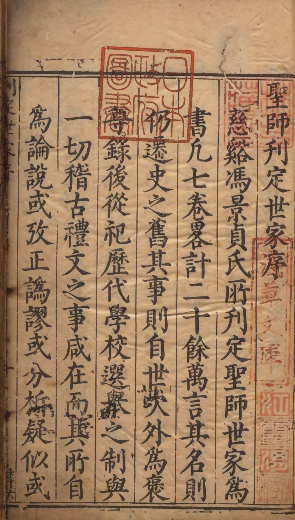 聖師刋定世家序
慈谿馮景貞氏所刋定聖師世家爲
書凡七卷畧計二十餘萬言其名則
仍遷史之舊其事則自世次外爲褒
尊錄後從祀歷代學校選舉之制與
一切稽古禮文之事咸在而其所自
爲論說或攷正譌謬或分析疑似或
日本
政府
圖書